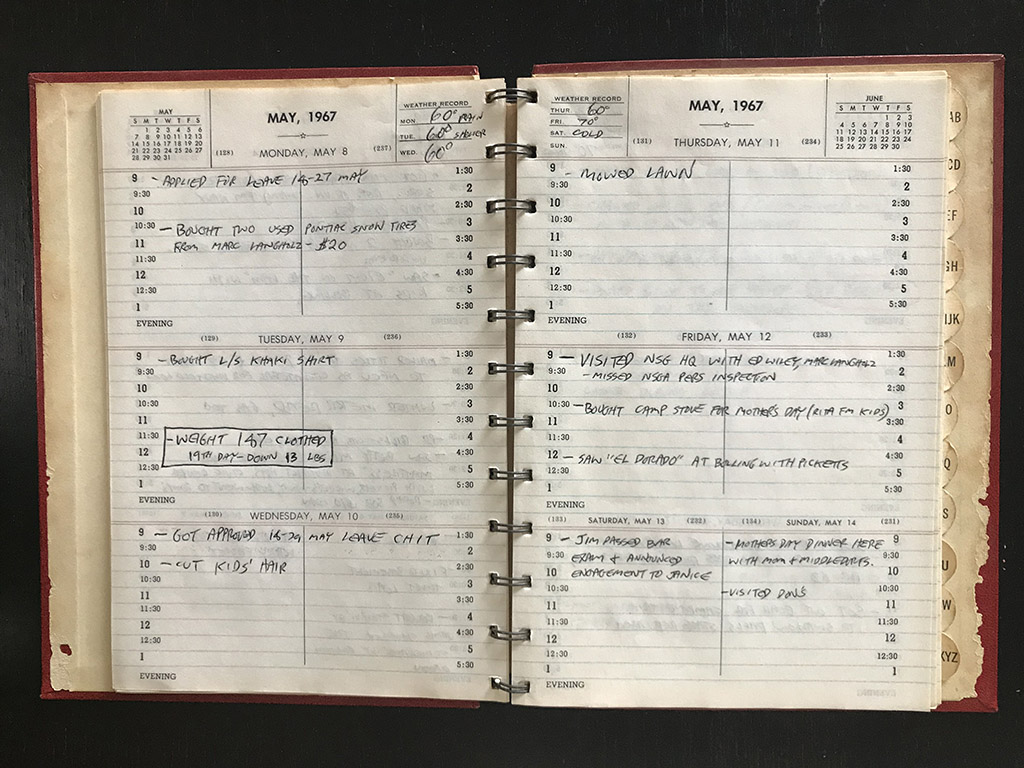 MAY
S M T W T F S
1 2 3 4 5 6
7 8 9 10 11 12 13
14 15 16 17 18 19 20
21 22 23 24 25 26 27
28 29 30 31
MAY, 1967
WEATHER RECORD
MON. 60° RAIN
TUE. 60°
WED. 60°
(128) MONDAY, MAY 8 (237)
9 - APPLIED FOR LEAVE 18-27 MAY 1:30
9:30 2
10 2:30
10:30 - BOUGHT TWO USED PONTIAC SNOW TIRES 3
11 FROM MARC LANGHOLZ - $20 3:30
11:30 4
12 4:30
12:30 5
1 5:30
EVENING
(129) TUESDAY, MAY 9 (236)
9 - BOUGHT L/S KHAKI SHIRT 1:30
9:30 2
10 2:30
10:30 3
11 3:30
11:30 - WEIGHT 187 CLOTHED 4
12 19TH DAY - DOWN 13 LBS 4:30
12:30 5
1 5:30
EVENING
(130) WEDNESDAY, MAY 10 (235)
9 - GOT APPROVED 18-29 MAY LEAVE CHIT 1:30
9:30 2
10 - CUT KIDS' HAIR 2:30
10:30 3
11 3:30
11:30 4
12 4:30
12:30 5
1 5:30
EVENING
WEATHER RECORD
THUR. 60°
FRI. 70°
SAT. COLD
SUN.
MAY, 1967
JUNE
S M T W T F S
1 2 3
4 5 6 7 8 9 10
11 12 13 14 15 16 17
18 19 20 21 22 23 24
25 26 27 28 29 30
(131) THURSDAY, MAY 11 (234)
9 - MOWED LAWN 1:30
9:30 2
10 2:30
10:30 3
11 3:30
11:30 4
12 4:30
12:30 5
1 5:30
EVENING
(132) FRIDAY, MAY 12 (233)
9 - VISITED NSG HQ WITH ED WILEY, MARC LANGHOLZ 1:30
9:30 - MISSED NSGA PERS INSPECTION 2
10 2:30
10:30 - BOUGHT CAMP STOVE FOR MOTHERS DAY (RITA FM KIDS) 3
11 3:30
11:30 4
12 - SAW "EL DORADO" AT BOLLING WITH PICKETTS 4:30
12:30 5
1 5:30
EVENING
(133) SATURDAY, MAY 13 (232)
9 - JIM PASSED BAR
9:30 EXAM & ANNOUNCED
10 ENGAGEMENT TO JANICE
10:30
11
11:30
12
12:30
1
EVENING
(134) SUNDAY, MAY 14 (231)
- MOTHERS DAY DINNER HERE 9
WITH MOM & MIDDLEDORFS. 9:30
10
- VISITED DON'S 10:30
11
11:30
12
12:30
1
AB
CD
EF
GH
IJK
M
O
Q
S
U
W
XYZ